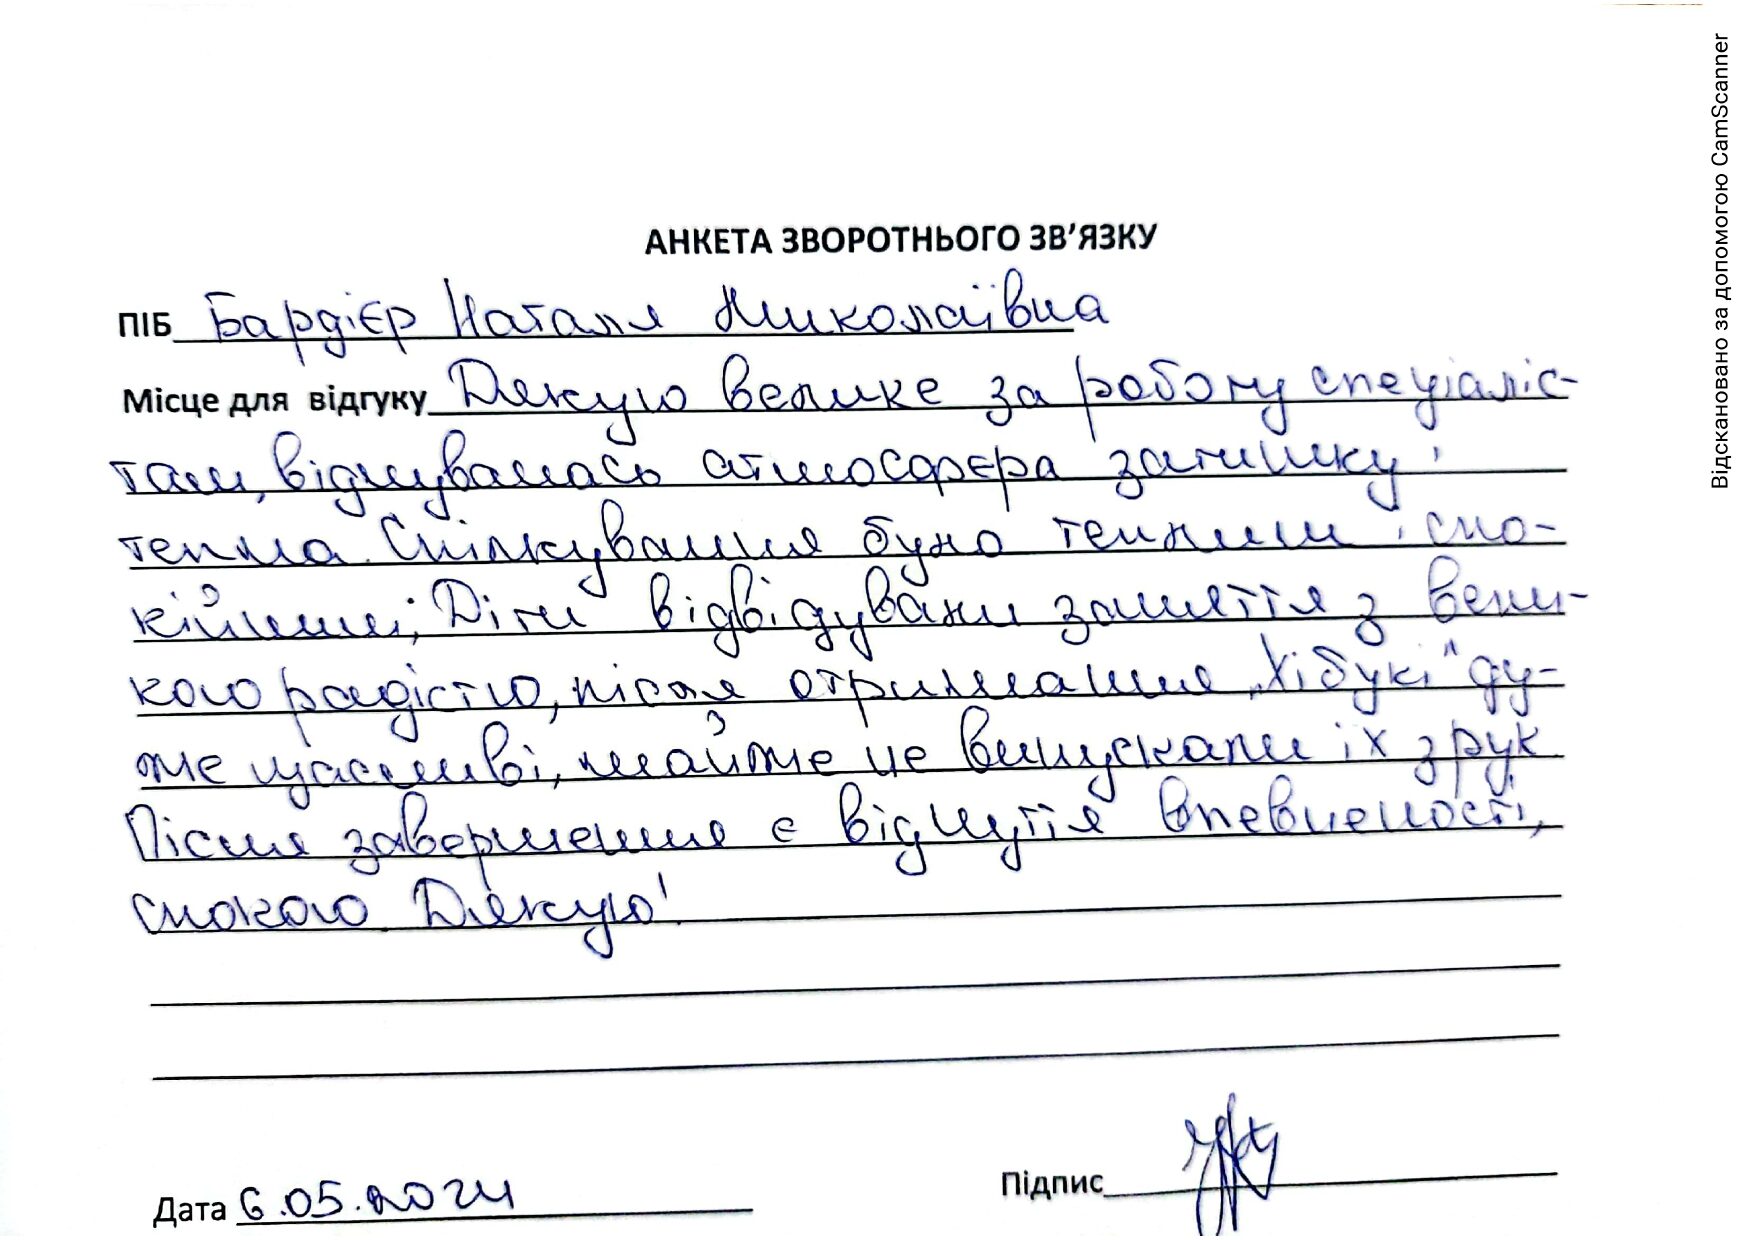 АНКЕТА ЗВОРОТНЬОГО ЗВ'ЯЗКУ
ПІБ Бардієр Наталя Миколаївна
Місце для відгуку Дякую велике за роботу спеціаліс-
там, відчувалась атмосфєра затишку і
тепла. Спілкування було теплим і спо-
кійним; Діти відвідували заняття з вели-
кою радістю, після отримання „Хібукі" ду-
же щасливі, майже не випускали їх з рук
Після завершення є відчуття впевнености,
спокою. Дякую!
Дата 6.05.2024
Підпис
Відскановано за допомогою CamScanner